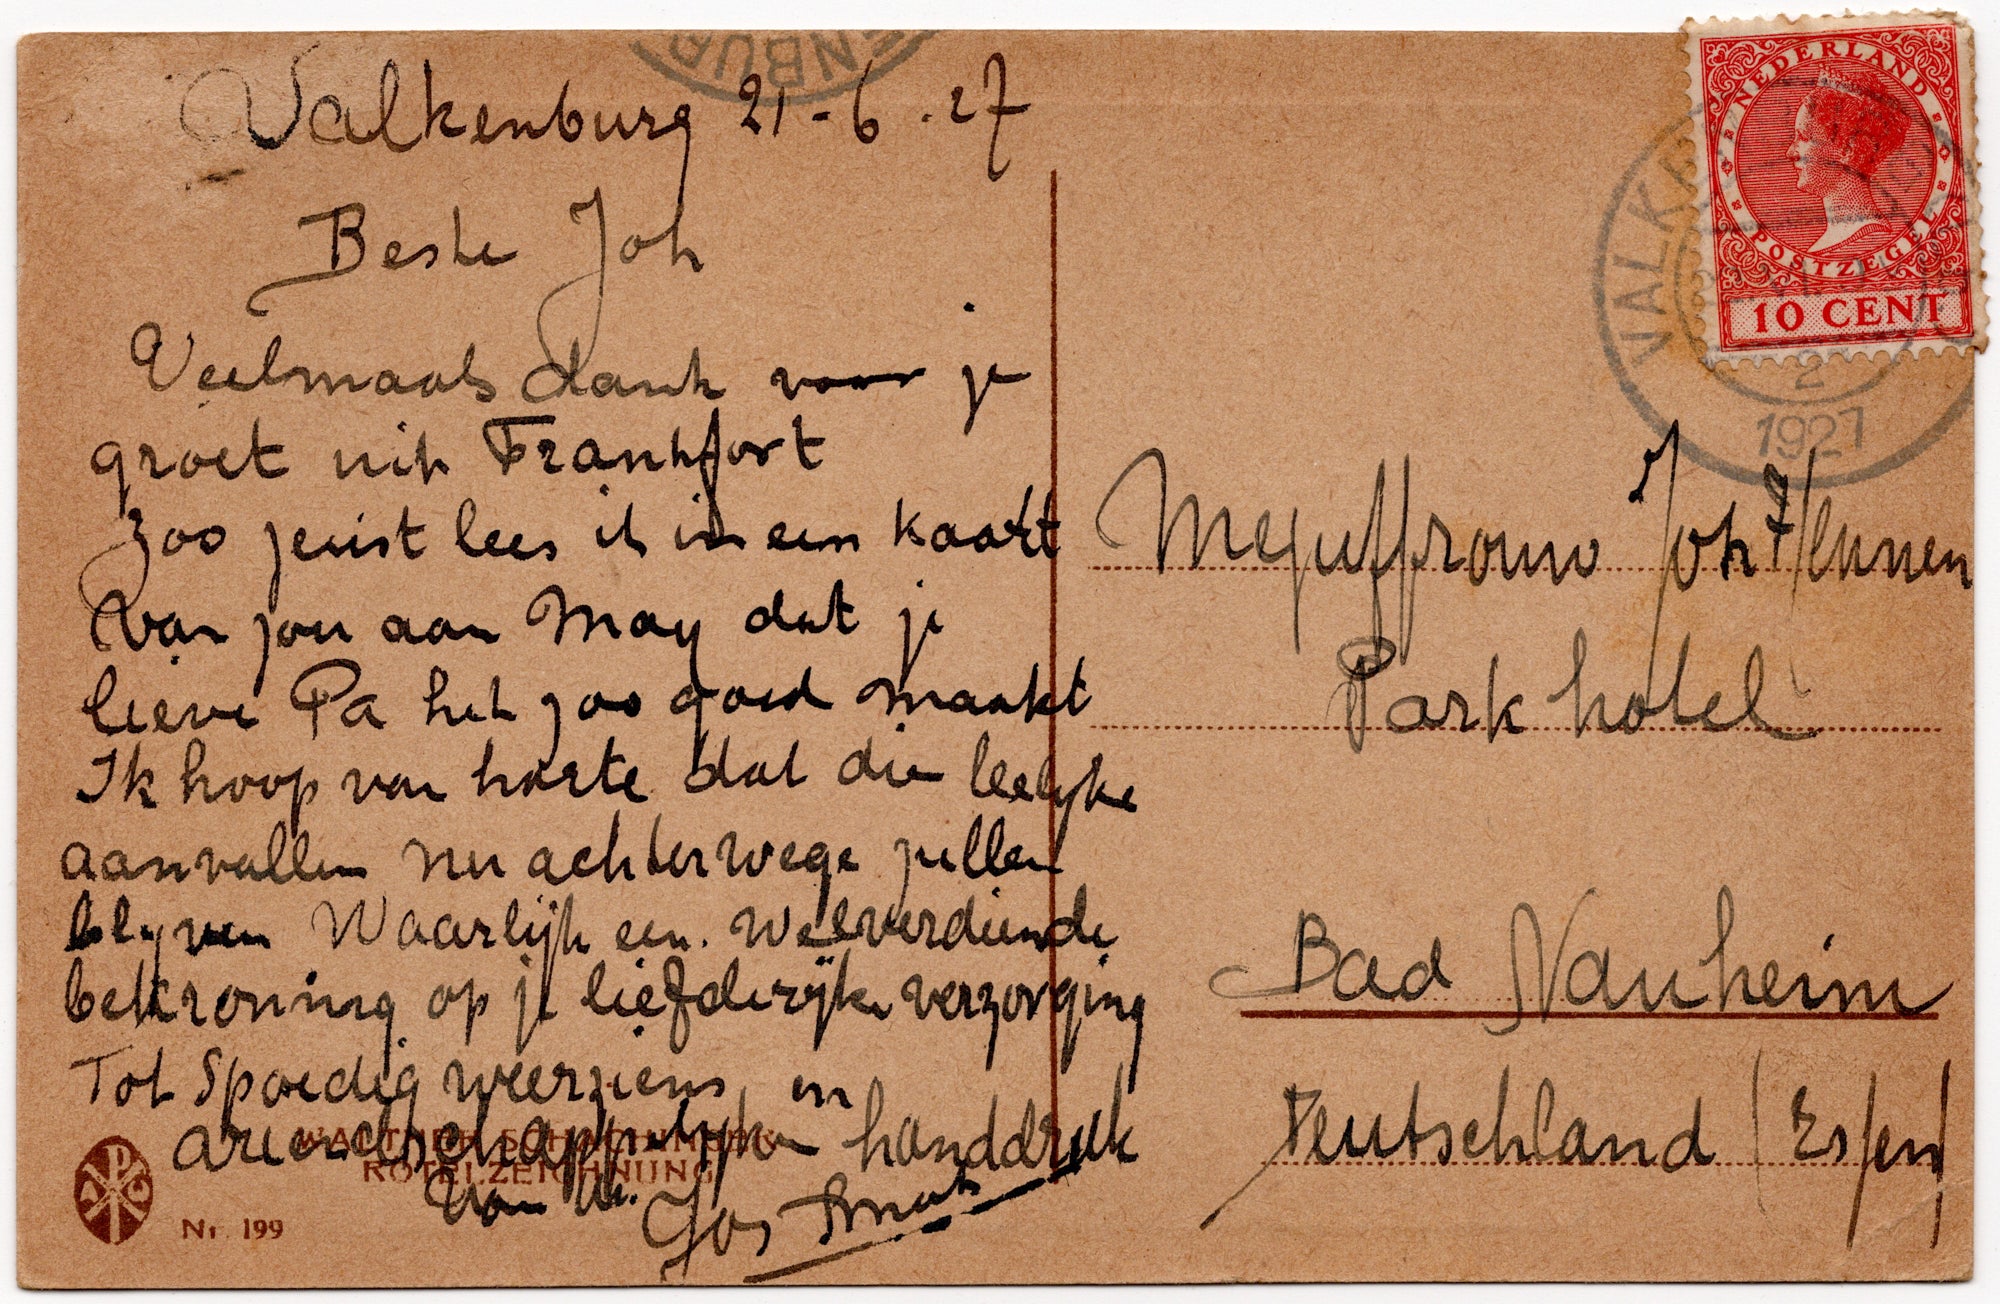 Valkenburg 21-6-27
Beste Joh
Veelmaals dank voor je
groet uit Frankfort
Zoo juist lees ik in een kaart
van jou aan May dat je
lieve Pa het zoo goed maakt
Ik hoop van harte dat die leelyke
aanvallen nu achterwege zullen
blyven Waarlijk een welverdiende
bekroning op je liefderijke verzorging
Tot Spoedig weerziens en
vriendschappelyken handdruk
van
Jos
WALTHER
ROTELZEICHNUNG
Nr. 199
ENBUR
NEDERLAND
POSTZEGEL
10 CENT
VALK
2
1927
Mejuffrouw Joh Hennen
Park hotel
Bad Nauheim
Deutschland (Essen)